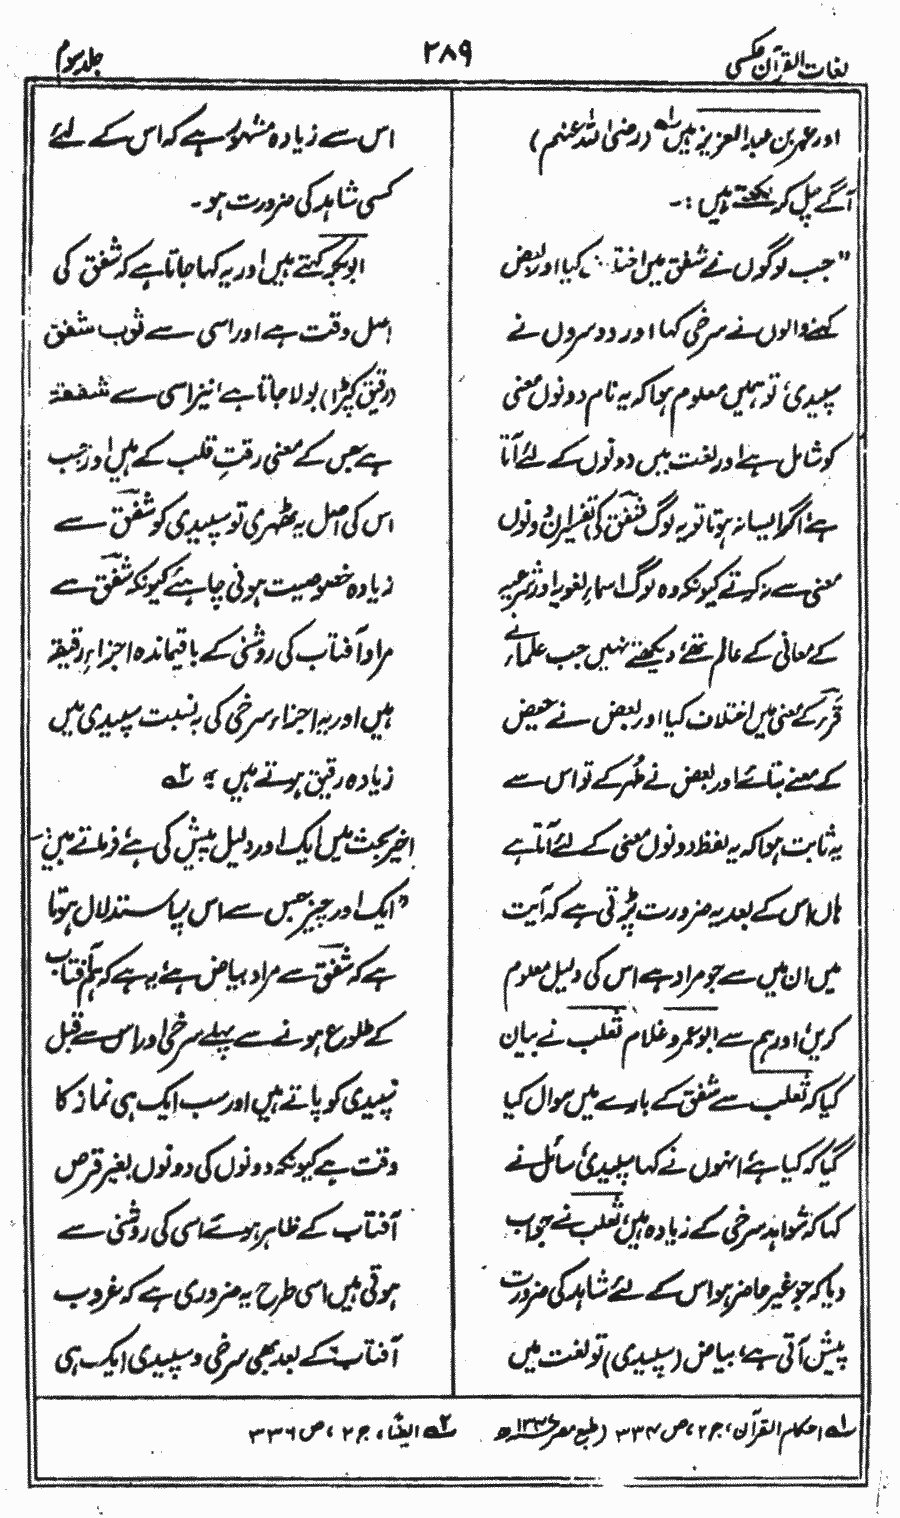 لغات القرآن عکسی
۲۸۹
جلد سوم
اور عمر بن عبد العزیز ہیں ؎۱ (رضی اللہ عنہم)
آگے چل کر لکھتے ہیں :-
"جب لوگوں نے شفق میں اختلاف کیا اور بعض
کہنے والوں نے سرخی کہا اور دوسروں نے
سپیدی، تو ہمیں معلوم ہوا کہ یہ نام دونوں معنی
کو شامل ہے اور لغت میں دونوں کے لئے آتا
ہے، اگر ایسا نہ ہوتا تو یہ لوگ شفق کی تفسیر ان دونوں
معنی سے نہ کرتے کیونکہ وہ لوگ اسماء لغویہ اور شرعیہ
کے معانی کے عالم تھے، دیکھتے نہیں جب علماء نے
قرء کے معنی میں اختلاف کیا اور بعض نے حیض
کے معنے بتائے اور بعض نے طُہر کے تو اس سے
یہ ثابت ہوا کہ یہ لفظ دونوں معنی کے لئے آتا ہے
ہاں اس کے بعد یہ ضرورت پڑتی ہے کہ آیت
میں ان میں سے جو مراد ہے اس کی دلیل معلوم
کریں، اور ہم سے ابو عمرو غلام ثعلب نے بیان
کیا کہ ثعلب سے شفق کے بارے میں سوال کیا
گیا کہ کیا ہے، انہوں نے کہا سپیدی، سائل نے
کہا کہ شواہد سرخی کے زیادہ ہیں، ثعلب نے جواب
دیا کہ جو غیر حاضر ہو اس کے لئے شاہد کی ضرورت
پیش آتی ہے، بیاض (سپیدی) تو لغت میں
اس سے زیادہ مشہور ہے کہ اس کے لئے
کسی شاہد کی ضرورت ہو۔
ابوبکر کہتے ہیں اور یہ کہا جاتا ہے کہ شفق کی
اصل وقت ہے اور اسی سے ثوب شفق
(رقیق کپڑا) بولا جاتا ہے، نیز اسی سے شفقۃ
ہے جس کے معنی رقتِ قلب کے ہیں، اور جب
اس کی اصل یہ ٹھہری تو سپیدی کو شفق سے
زیادہ خصوصیت ہونی چاہئے کیونکہ شفق سے
مراد آفتاب کی روشنی کے باقیماندہ اجزاءِ رقیقہ
ہیں اور یہ اجزاء سرخی کی بہ نسبت سپیدی میں
زیادہ رقیق ہوتے ہیں" ؎۲
اخیر بحث میں ایک اور دلیل پیش کی ہے، فرماتے ہیں :-
"ایک اور چیز جس سے اس پر استدلال ہوتا
ہے کہ شفق سے مراد بیاض ہے، یہ ہے کہ ہم آفتاب
کے طلوع ہونے سے پہلے سرخی اور اس سے قبل
سپیدی کو پاتے ہیں اور سب ایک ہی نماز کا
وقت ہے کیونکہ دونوں کی دونوں بغیر قرص
آفتاب کے ظاہر ہوئے اسی کی روشنی سے
ہوتی ہیں اسی طرح یہ ضروری ہے کہ غروب
آفتاب کے بعد بھی سرخی و سپیدی ایک ہی
؎۱ احکام القرآن، ج ۲، ص ۳۳۴ (طبع مصر ھ
؎۲ ایضًا، ج ۲، ص ۳۳۶